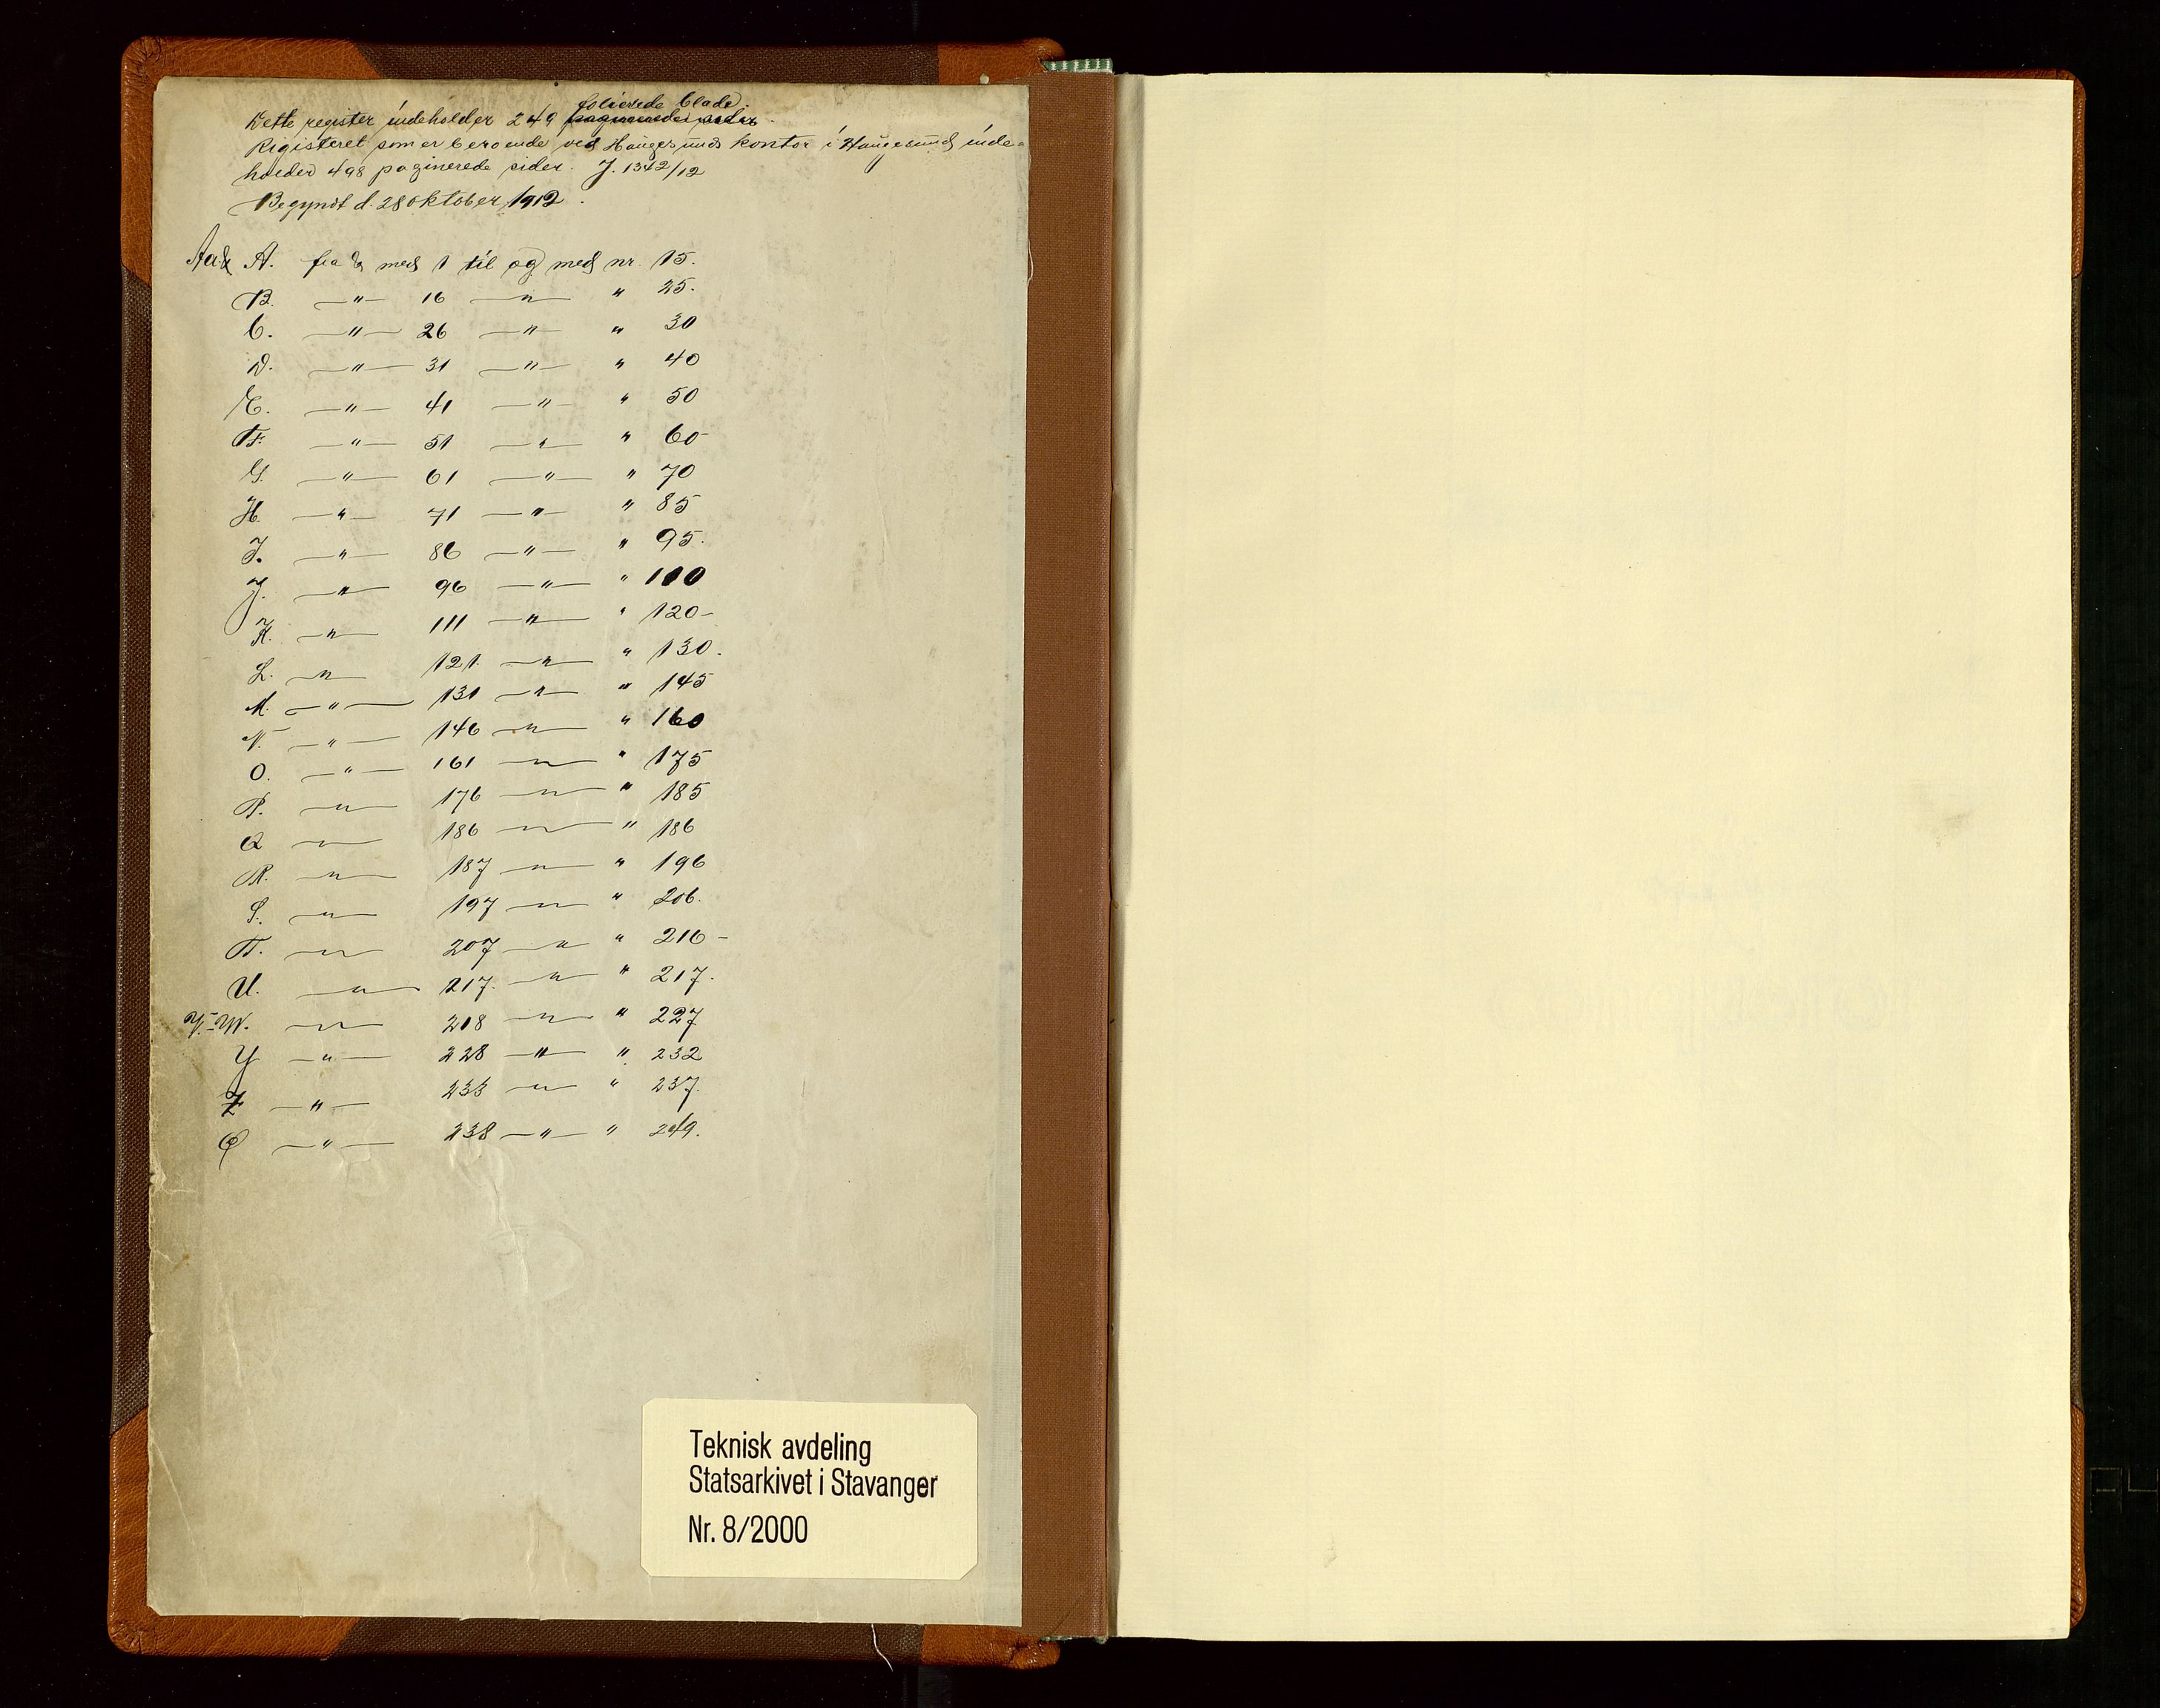 folierede blade.
Dette register indeholder 249 paginerede sider.
Registeret som er beroende ved Haugesunds kontor i Haugesund inde-
holder 498 paginerede sider. J. 1342/12
Begyndt d. 28 oktober 1912.
Aa & A. fra & med 1 til og med nr. 15.
B. —"— 16 —"— " 25.
C. —"— 26 —"— " 30
D. —"— 31 —"— " 40
E. —"— 41 —"— " 50
F. —"— 51 —"— " 60-
G. —"— 61 —"— " 70
H. —"— 71 —"— " 85
I. —"— 86 —"— " 95.
J. —"— 96 —"— " 110
K. —"— 111 —"— " 120-
L. —"— 121. —"— " 130.
M. —"— 131 —"— " 145
N. —"— 146 —"— " 160
O. —"— 161 —"— " 175
P. —"— 176 —"— " 185
Q —"— 186 —"— " 186
R. —"— 187 —"— " 196
S. —"— 197 —"— " 206.
T. —"— 207 —"— " 216-
U. —"— 217. —"— " 217.
V.-W. —"— 218 —"— " 227
Y —"— 228 —"— " 232
Z —"— 233 —"— " 237.
Ø —"— 238 —"— " 249.
Teknisk avdeling
Statsarkivet i Stavanger
Nr. 8/2000